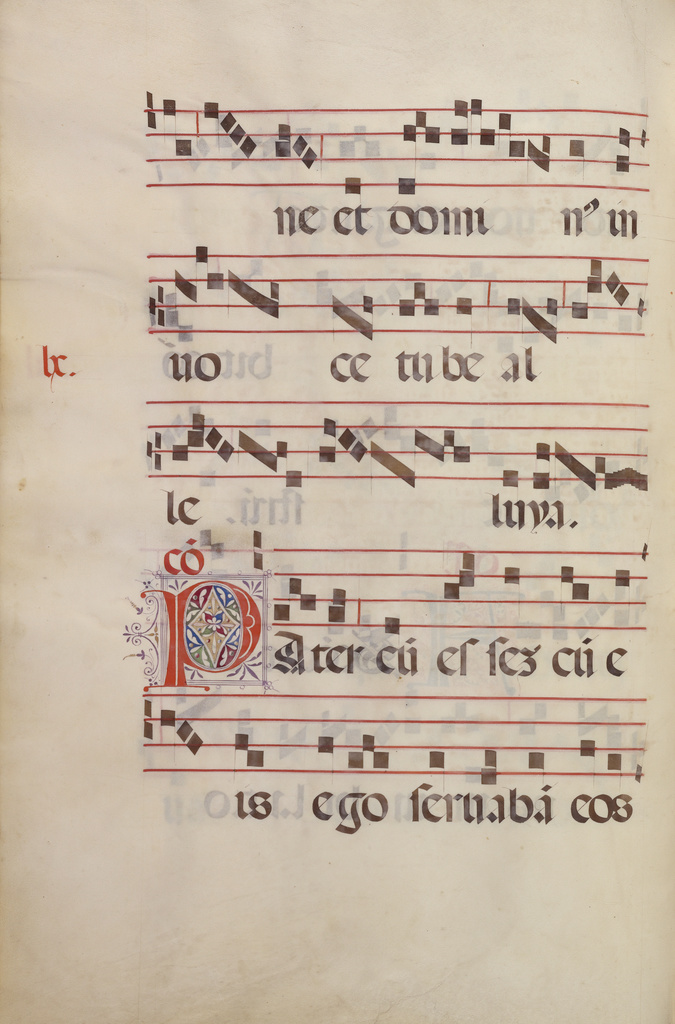 ne et domi nꝰ in
lx.
uo ce tube al
le luya.
cō
Pater cū eſ ſez cū e
is ego ſeruabā eos